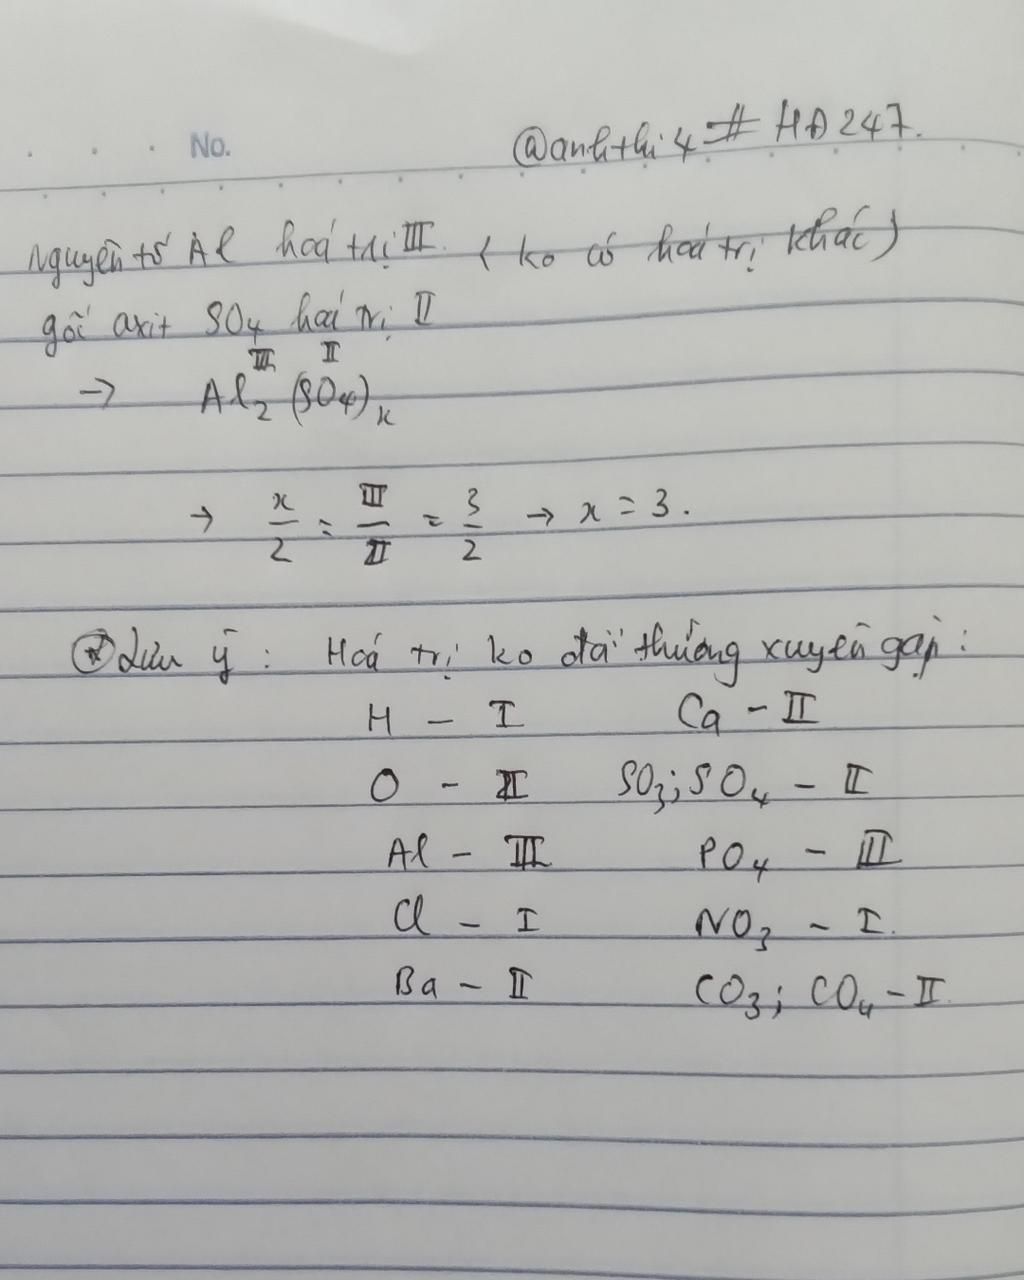 No.
@anhthi4 # HĐ247.
Nguyên tố Al hoá trị III. (ko có hoá trị khác)
gốc axit SO₄ hoá trị II
III II
→ Al₂ (SO₄)ₓ
→ x/2 = III/II = 3/2 → x = 3.
⊛ Lưu ý : Hoá trị ko đổi thường xuyên gặp :
H – I Ca – II
O – II SO₃; SO₄ – II
Al – III PO₄ – III
Cl – I NO₃ – I.
Ba – II CO₃; CO₄ – II